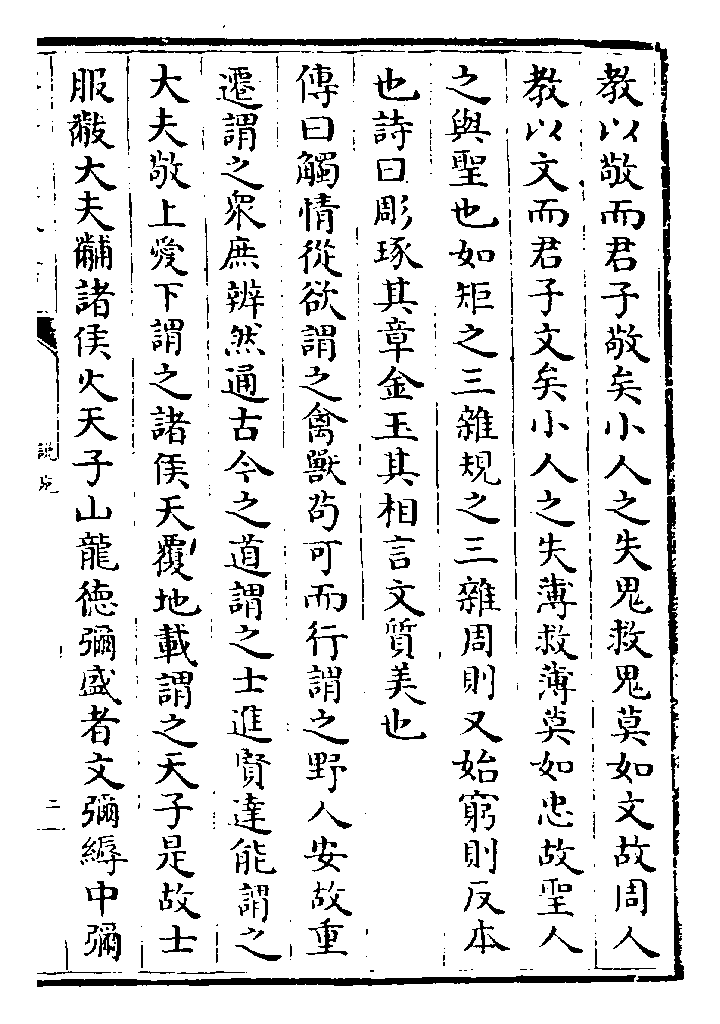 教以敬而君子敬矣小人之失鬼救鬼莫如文故周人
教以文而君子文矣小人之失薄救薄莫如忠故聖人
之與聖也如矩之三雜規之三雜周則又始窮則反本
也詩曰彫琢其章金玉其相言文質美也
傳曰觸情從欲謂之禽獸苟可而行謂之野人安故重
遷謂之衆庶辨然通古今之道謂之士進賢達能謂之
大夫敬上愛下謂之諸侯天覆地載謂之天子是故士
服黻大夫黼諸侯火天子山龍德彌盛者文彌縟中彌
說苑
二